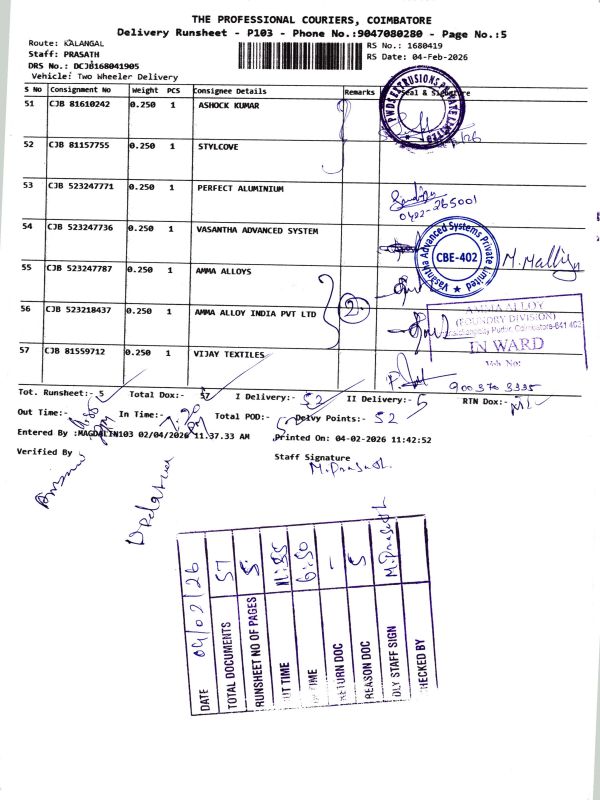 THE PROFESSIONAL COURIERS, COIMBATORE
Delivery Runsheet - P103 - Phone No.:9047080280 - Page No.:5
Route: KALANGAL
Staff: PRASATH
DRS No.: DCJB168041905
Vehicle: Two Wheeler Delivery
RS No.: 1680419
RS Date: 04-Feb-2026
S No Consignment No Weight PCS Consignee Details Remarks Seal & Signature
51 CJB 81610242 0.250 1 ASHOCK KUMAR
52 CJB 81157755 0.250 1 STYLCOVE
53 CJB 523247771 0.250 1 PERFECT ALUMINIUM
0422-265001
54 CJB 523247736 0.250 1 VASANTHA ADVANCED SYSTEM
Vasantha Advanced Systems Private Limited
CBE-402
55 CJB 523247787 0.250 1 AMMA ALLOYS
2
56 CJB 523218437 0.250 1 AMMA ALLOY INDIA PVT LTD
AMMA ALLOY
(FOUNDRY DIVISION)
IN WARD
57 CJB 81559712 0.250 1 VIJAY TEXTILES
900370 3335
Tot. Runsheet:- 5 Total Dox:- 57 I Delivery:- 52 II Delivery:- 5 RTN Dox:-
Out Time:- In Time:- Total POD:- Delvy Points:- 52
Entered By :MAGDALIN103 02/04/2026 11.37.33 AM Printed On: 04-02-2026 11:42:52
Verified By Staff Signature
M. Prasath.
DATE 04/02/26
TOTAL DOCUMENTS 57
RUNSHEET NO OF PAGES 5
UT TIME 11:55
TIME 6:50
ETURN DOC -
REASON DOC 5
DLY STAFF SIGN M. Prasath
HECKED BY